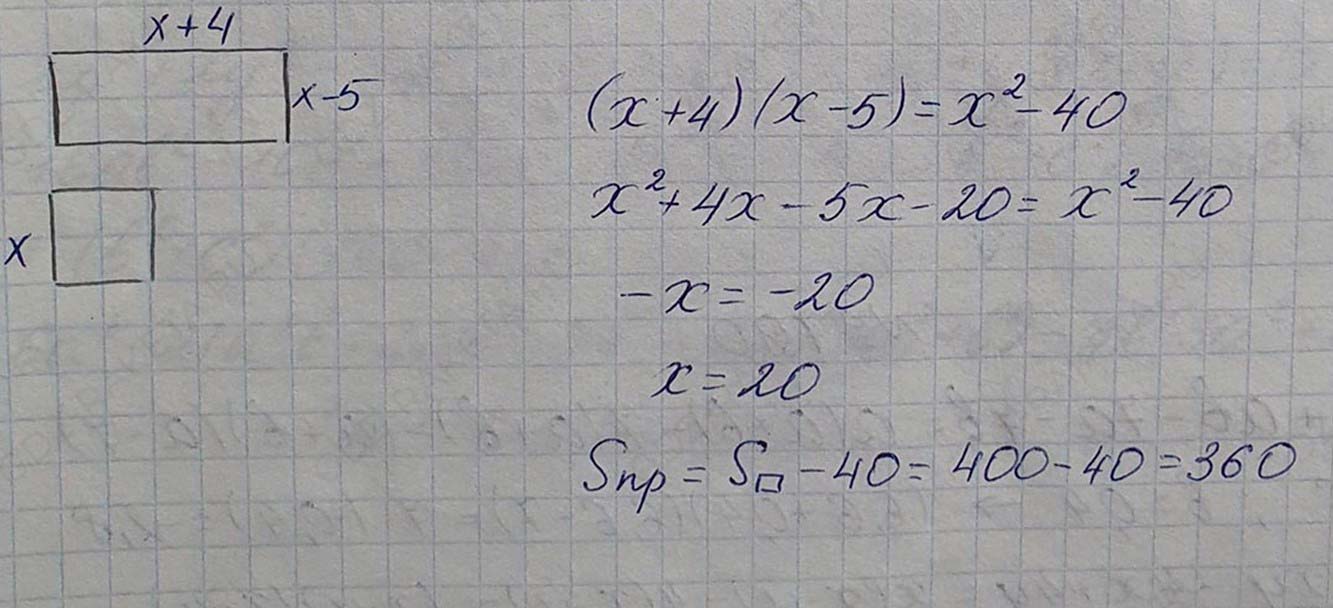 x+4
x-5
x
(x+4)(x-5)=x²-40
x²+4x-5x-20=x²-40
-x=-20
x=20
Sпр=S□-40=400-40=360